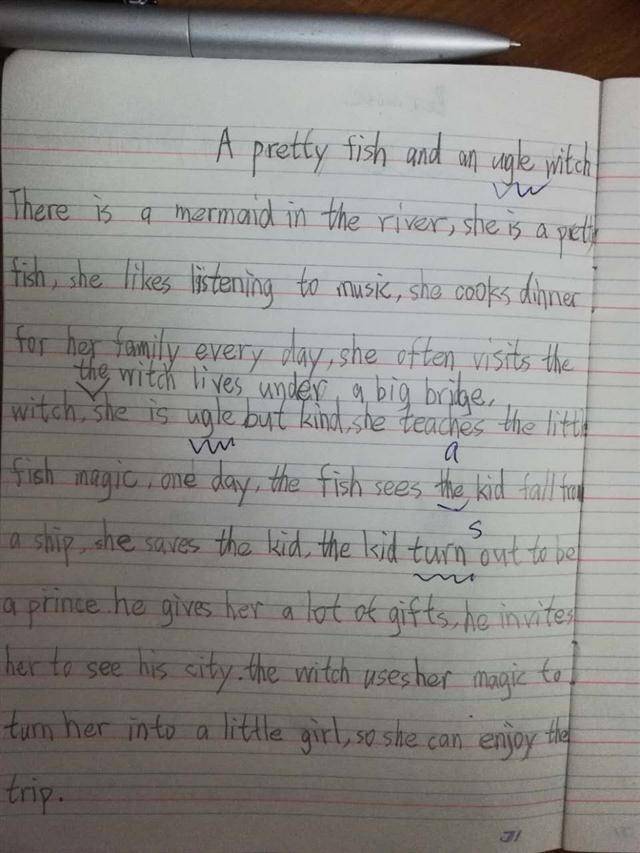 A pretty fish and an ugle witch
There is a mermaid in the river, she is a pretty
fish, she likes listening to music, she cooks dinner
for her family every day, she often visits the
the witch lives under a big bridge,
witch, she is ugle but kind, she teaches the little
a
fish magic, one day, the fish sees the kid fall from
s
a ship, she saves the kid, the kid turn out to be
a prince. he gives her a lot of gifts, he invites
her to see his city. the witch uses her magic to
turn her into a little girl, so she can enjoy the
trip.